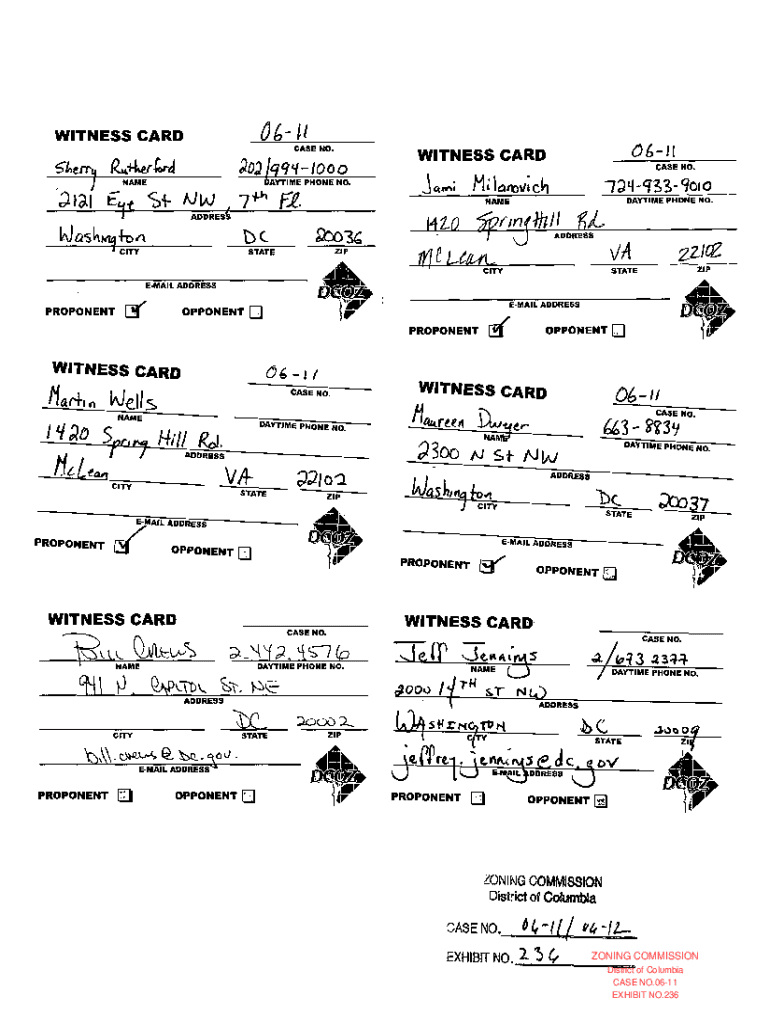 WITNESS CARD
06-11
CASE NO.
Sherry Rutherford
202/994-1000
NAME
DAYTIME PHONE NO.
2121 Eye St NW, 7th Fl.
ADDRESS
Washington DC 20036
CITY STATE ZIP
E-MAIL ADDRESS
DCOZ
PROPONENT OPPONENT
WITNESS CARD
06-11
CASE NO.
Jami Milanovich
724-933-9010
NAME
DAYTIME PHONE NO.
1420 SpringHill Rd
ADDRESS
McLean VA 22102
CITY STATE ZIP
E-MAIL ADDRESS
DCOZ
PROPONENT OPPONENT
WITNESS CARD
06-11
CASE NO.
Martin Wells
NAME
DAYTIME PHONE NO.
1420 Spring Hill Rd.
ADDRESS
McLean VA 22102
CITY STATE ZIP
E-MAIL ADDRESS
DCOZ
PROPONENT OPPONENT
WITNESS CARD
06-11
CASE NO.
Maureen Dwyer
663-8834
NAME
DAYTIME PHONE NO.
2300 N St NW
ADDRESS
Washington DC 20037
CITY STATE ZIP
E-MAIL ADDRESS
DCOZ
PROPONENT OPPONENT
WITNESS CARD
CASE NO.
Bill Crews 2.442.4576
NAME DAYTIME PHONE NO.
941 N. CAPITOL ST. NE
ADDRESS
DC 20002
CITY STATE ZIP
bill.crews@dc.gov.
E-MAIL ADDRESS
DCOZ
PROPONENT OPPONENT
WITNESS CARD
CASE NO.
Jeff Jennings 2/673 2377
NAME DAYTIME PHONE NO.
2000 14TH ST NW
ADDRESS
WASHINGTON DC 20009
CITY STATE ZIP
jeffrey.jennings@dc.gov
E-MAIL ADDRESS
DCOZ
PROPONENT OPPONENT
ZONING COMMISSION
District of Columbia
CASE NO. 06-11/06-12
EXHIBIT NO. 236
ZONING COMMISSION
District of Columbia
CASE NO.06-11
EXHIBIT NO.236